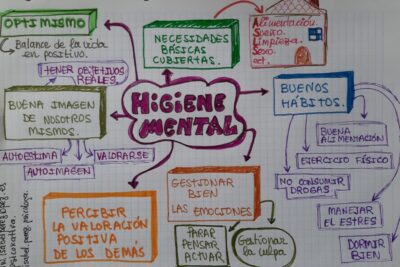 OPTIMISMO
Balance de la vida
en positivo.
NECESIDADES
BÁSICAS
CUBIERTAS.
Alimentación.
Aseo.
Limpieza.
Sexo.
ect.
TENER OBJETIVOS
REALES.
BUENA IMAGEN
DE NOSOTROS
MISMOS.
AUTOESTIMA
VALORARSE
AUTOIMAGEN
HIGIENE
MENTAL
BUENOS
HÁBITOS.
BUENA
ALIMENTACIÓN.
EJERCICIO FÍSICO
NO CONSUMIR
DROGAS
MANEJAR
EL ESTRES
DORMIR
BIEN
PERCIBIR
LA VALORACIÓN
POSITIVA
DE LOS DEMÁS
GESTIONAR
BIEN
LAS EMOCIONES
PARAR
PENSAR
ACTUAR
Gestionar
la culpa